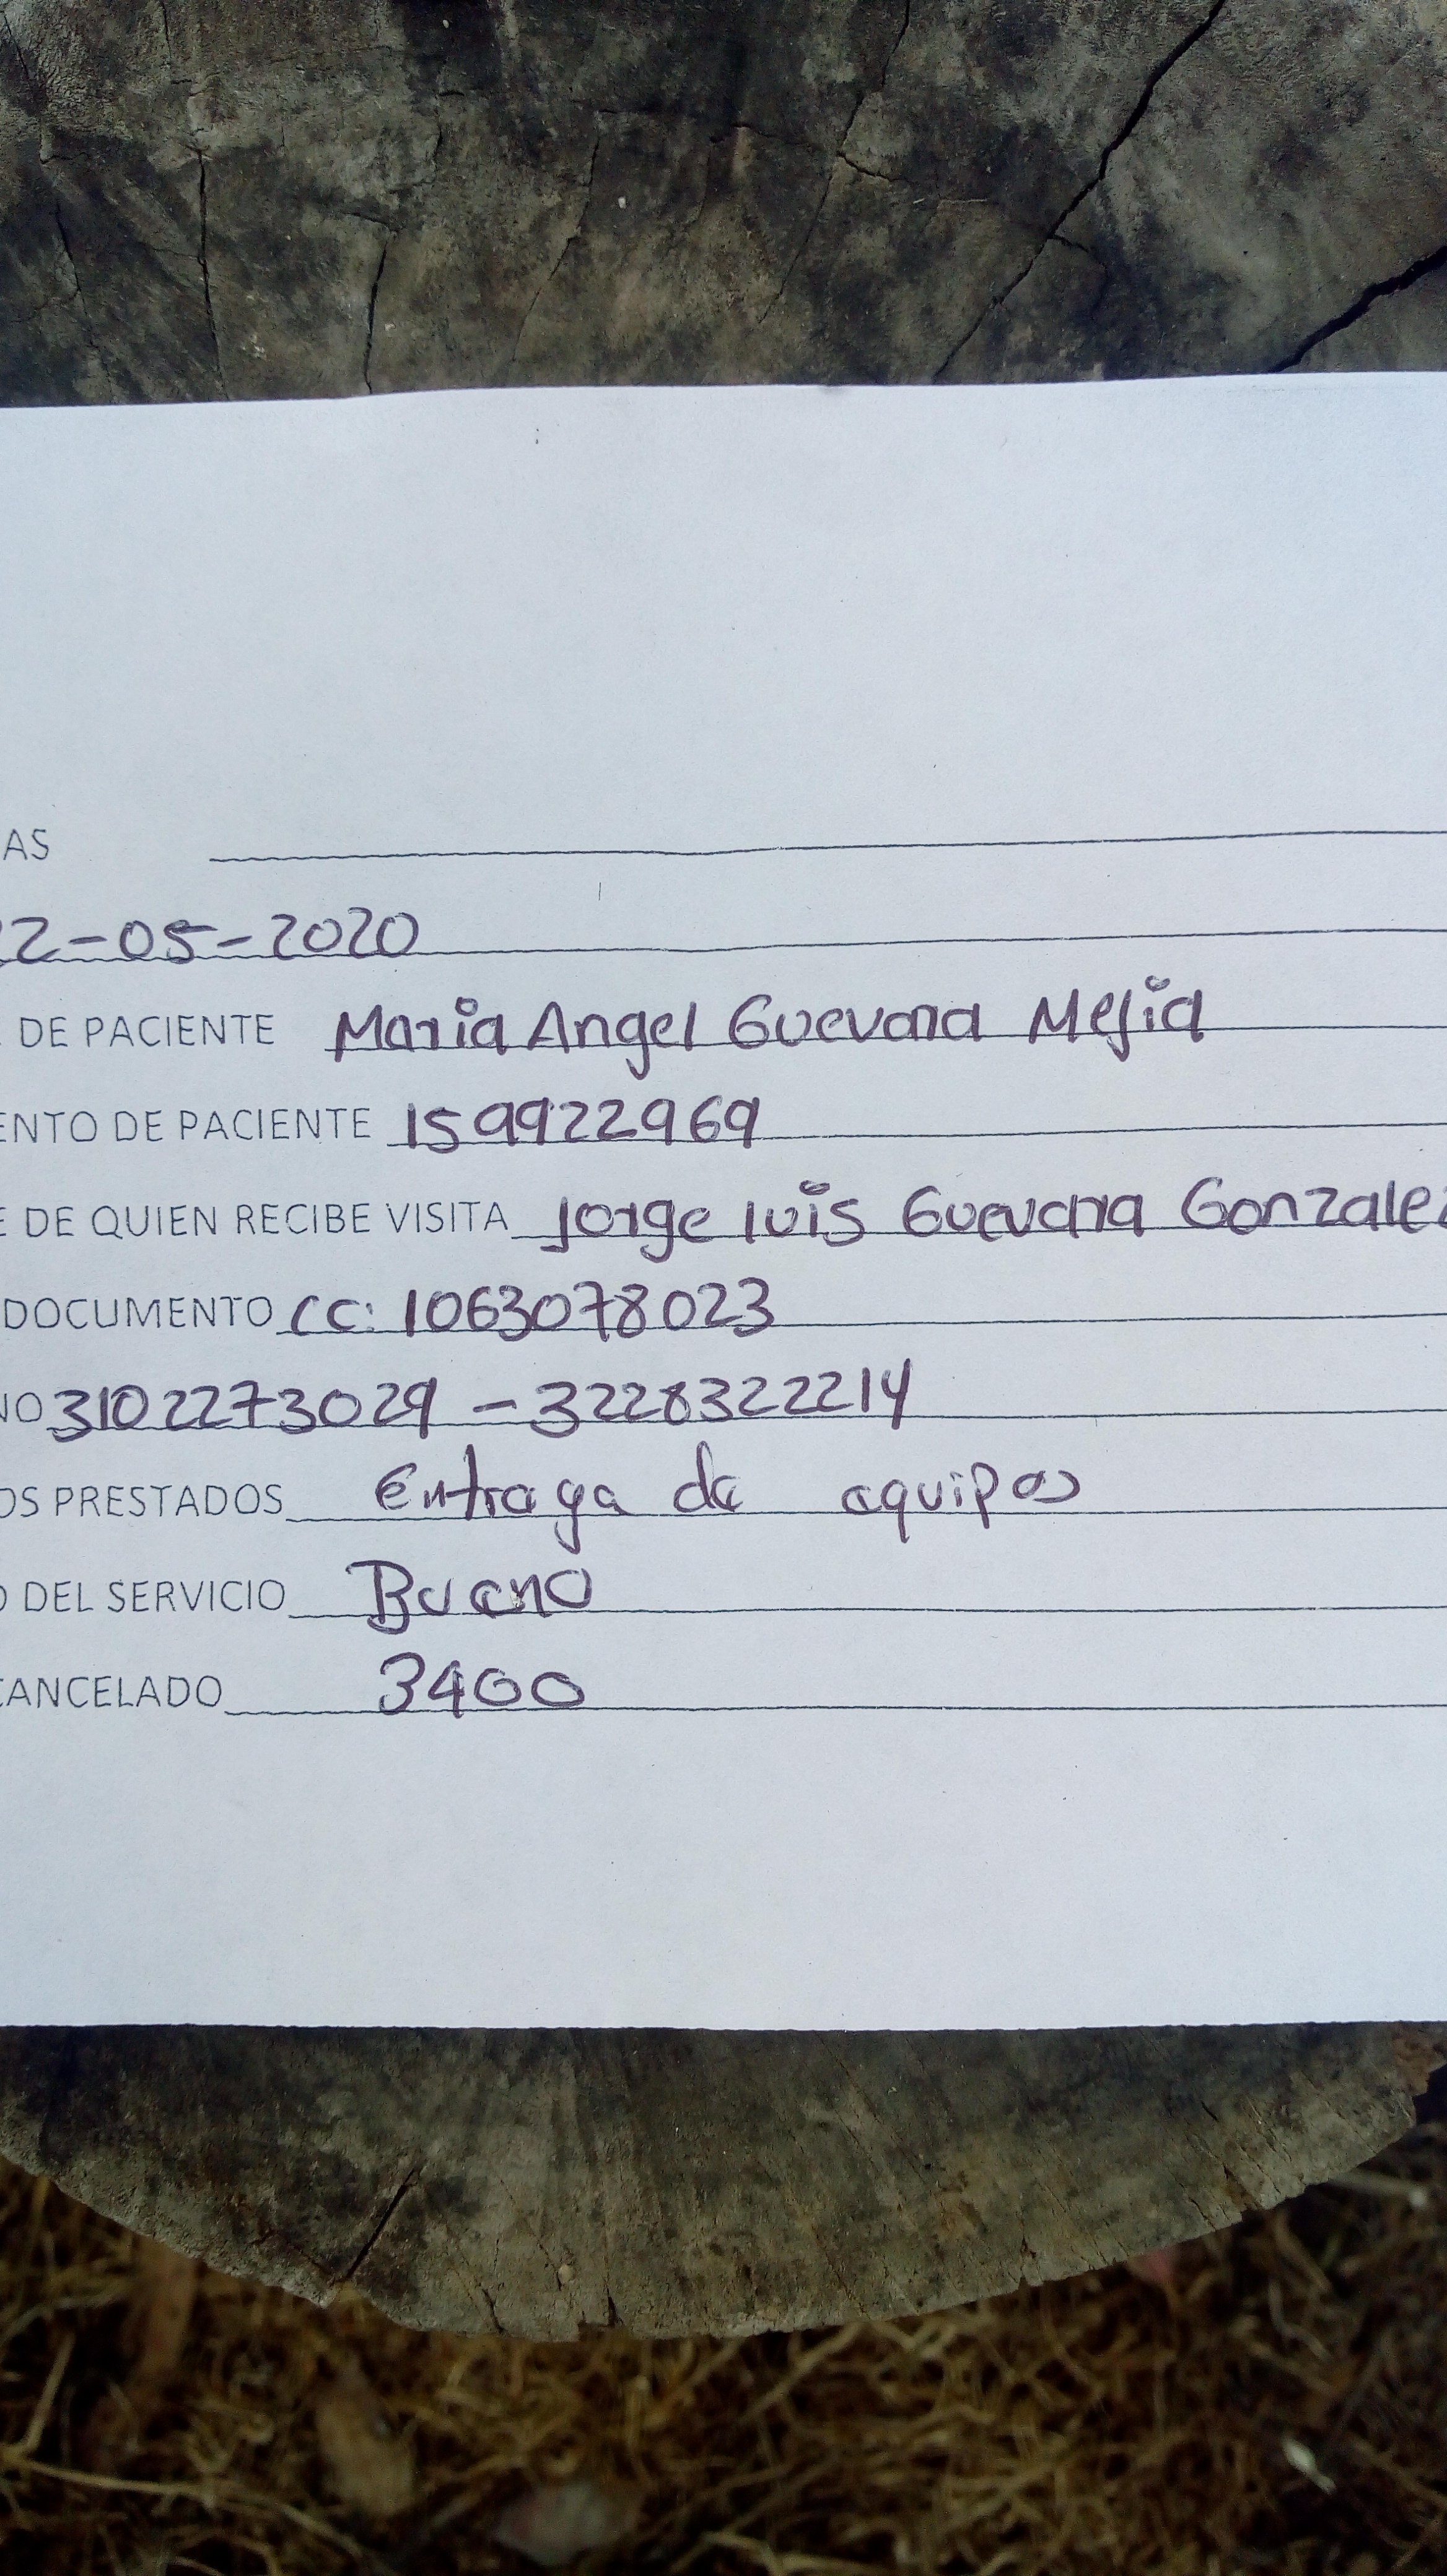 AS
22-05-2020
DE PACIENTE Maria Angel Guevara Mejia
ENTO DE PACIENTE 159922969
E DE QUIEN RECIBE VISITA Jorge luis Guevara Gonzalez
DOCUMENTO CC: 1063078023
NO 3102273029 - 3228322214
OS PRESTADOS entrega de equipos
O DEL SERVICIO Bueno
CANCELADO 3400